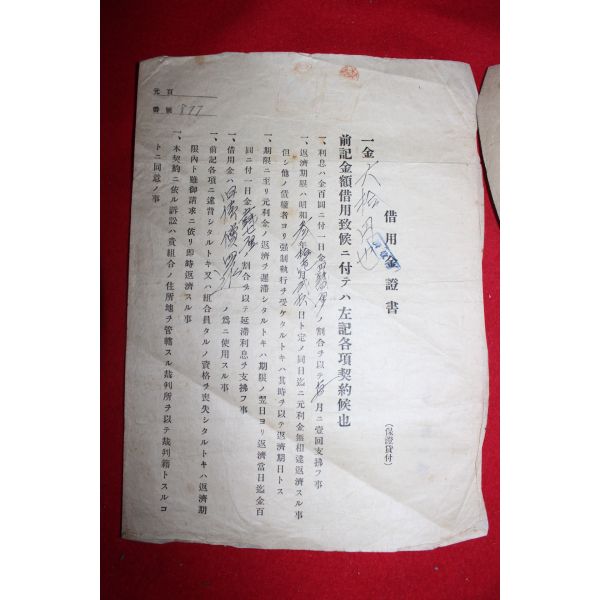 借用金證書
(保證貸付)
一金六拾円也
前記金額借用致候ニ付テハ左記各項契約候也
一、利息ハ金百圓ニ付一日金 ノ割合ヲ以テ 月ニ壹回支拂フ事
一、返濟期限ハ昭和 年 月 日ト定メ同日迄ニ元利金無相違返濟スル事
但シ他ノ債權者ヨリ强制執行ヲ受ケタルトキハ其時ヲ以テ返濟期日トス
一、期限ニ至リ元利金ノ返濟ヲ遲滯シタルトキハ期限ノ翌日ヨリ返濟當日迄金百
圓ニ付一日金 ノ割合ヲ以テ延滯利息ヲ支拂フ事
一、借用金ハ ノ爲ニ使用スル事
一、前記各項ニ違背シタルトキ又ハ組合員タルノ資格ヲ喪失シタルトキハ返濟期
限內ト雖御請求ニ依リ卽時返濟スル事
一、本契約ニ依ル訴訟ハ貴組合ノ住所地ヲ管轄スル裁判所ヲ以テ裁判籍トスルコ
トニ同意ノ事
元百
番號 877